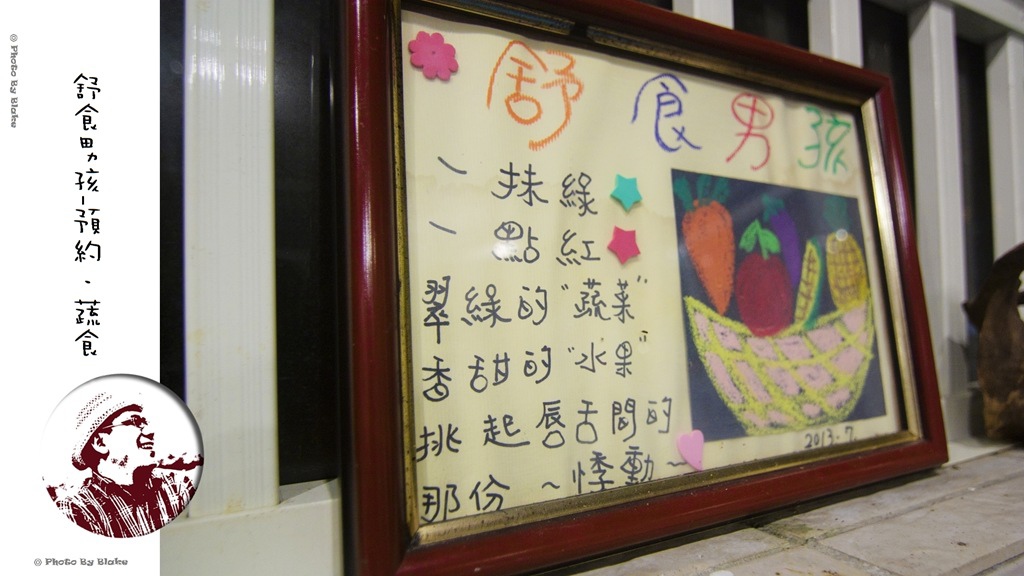 © Photo By Blake
舒食男孩-預約·蔬食
© Photo By Blake
舒食男孩
一抹綠
一點紅
翠綠的"蔬菜"
香甜的"水果"
挑起唇舌間的
那份~悸動~
2013.7.